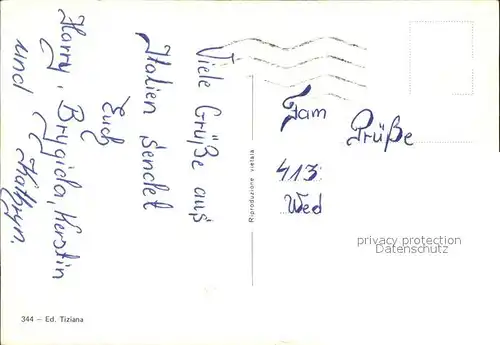 Viele Grüße aus
Italien sendet
Euch
Harry, Brygida, Kerstin
und Kathryn.
Fam
Prüße
413
Wed
Riproduzione vietata
privacy protection
Datenschutz
344 – Ed. Tiziana